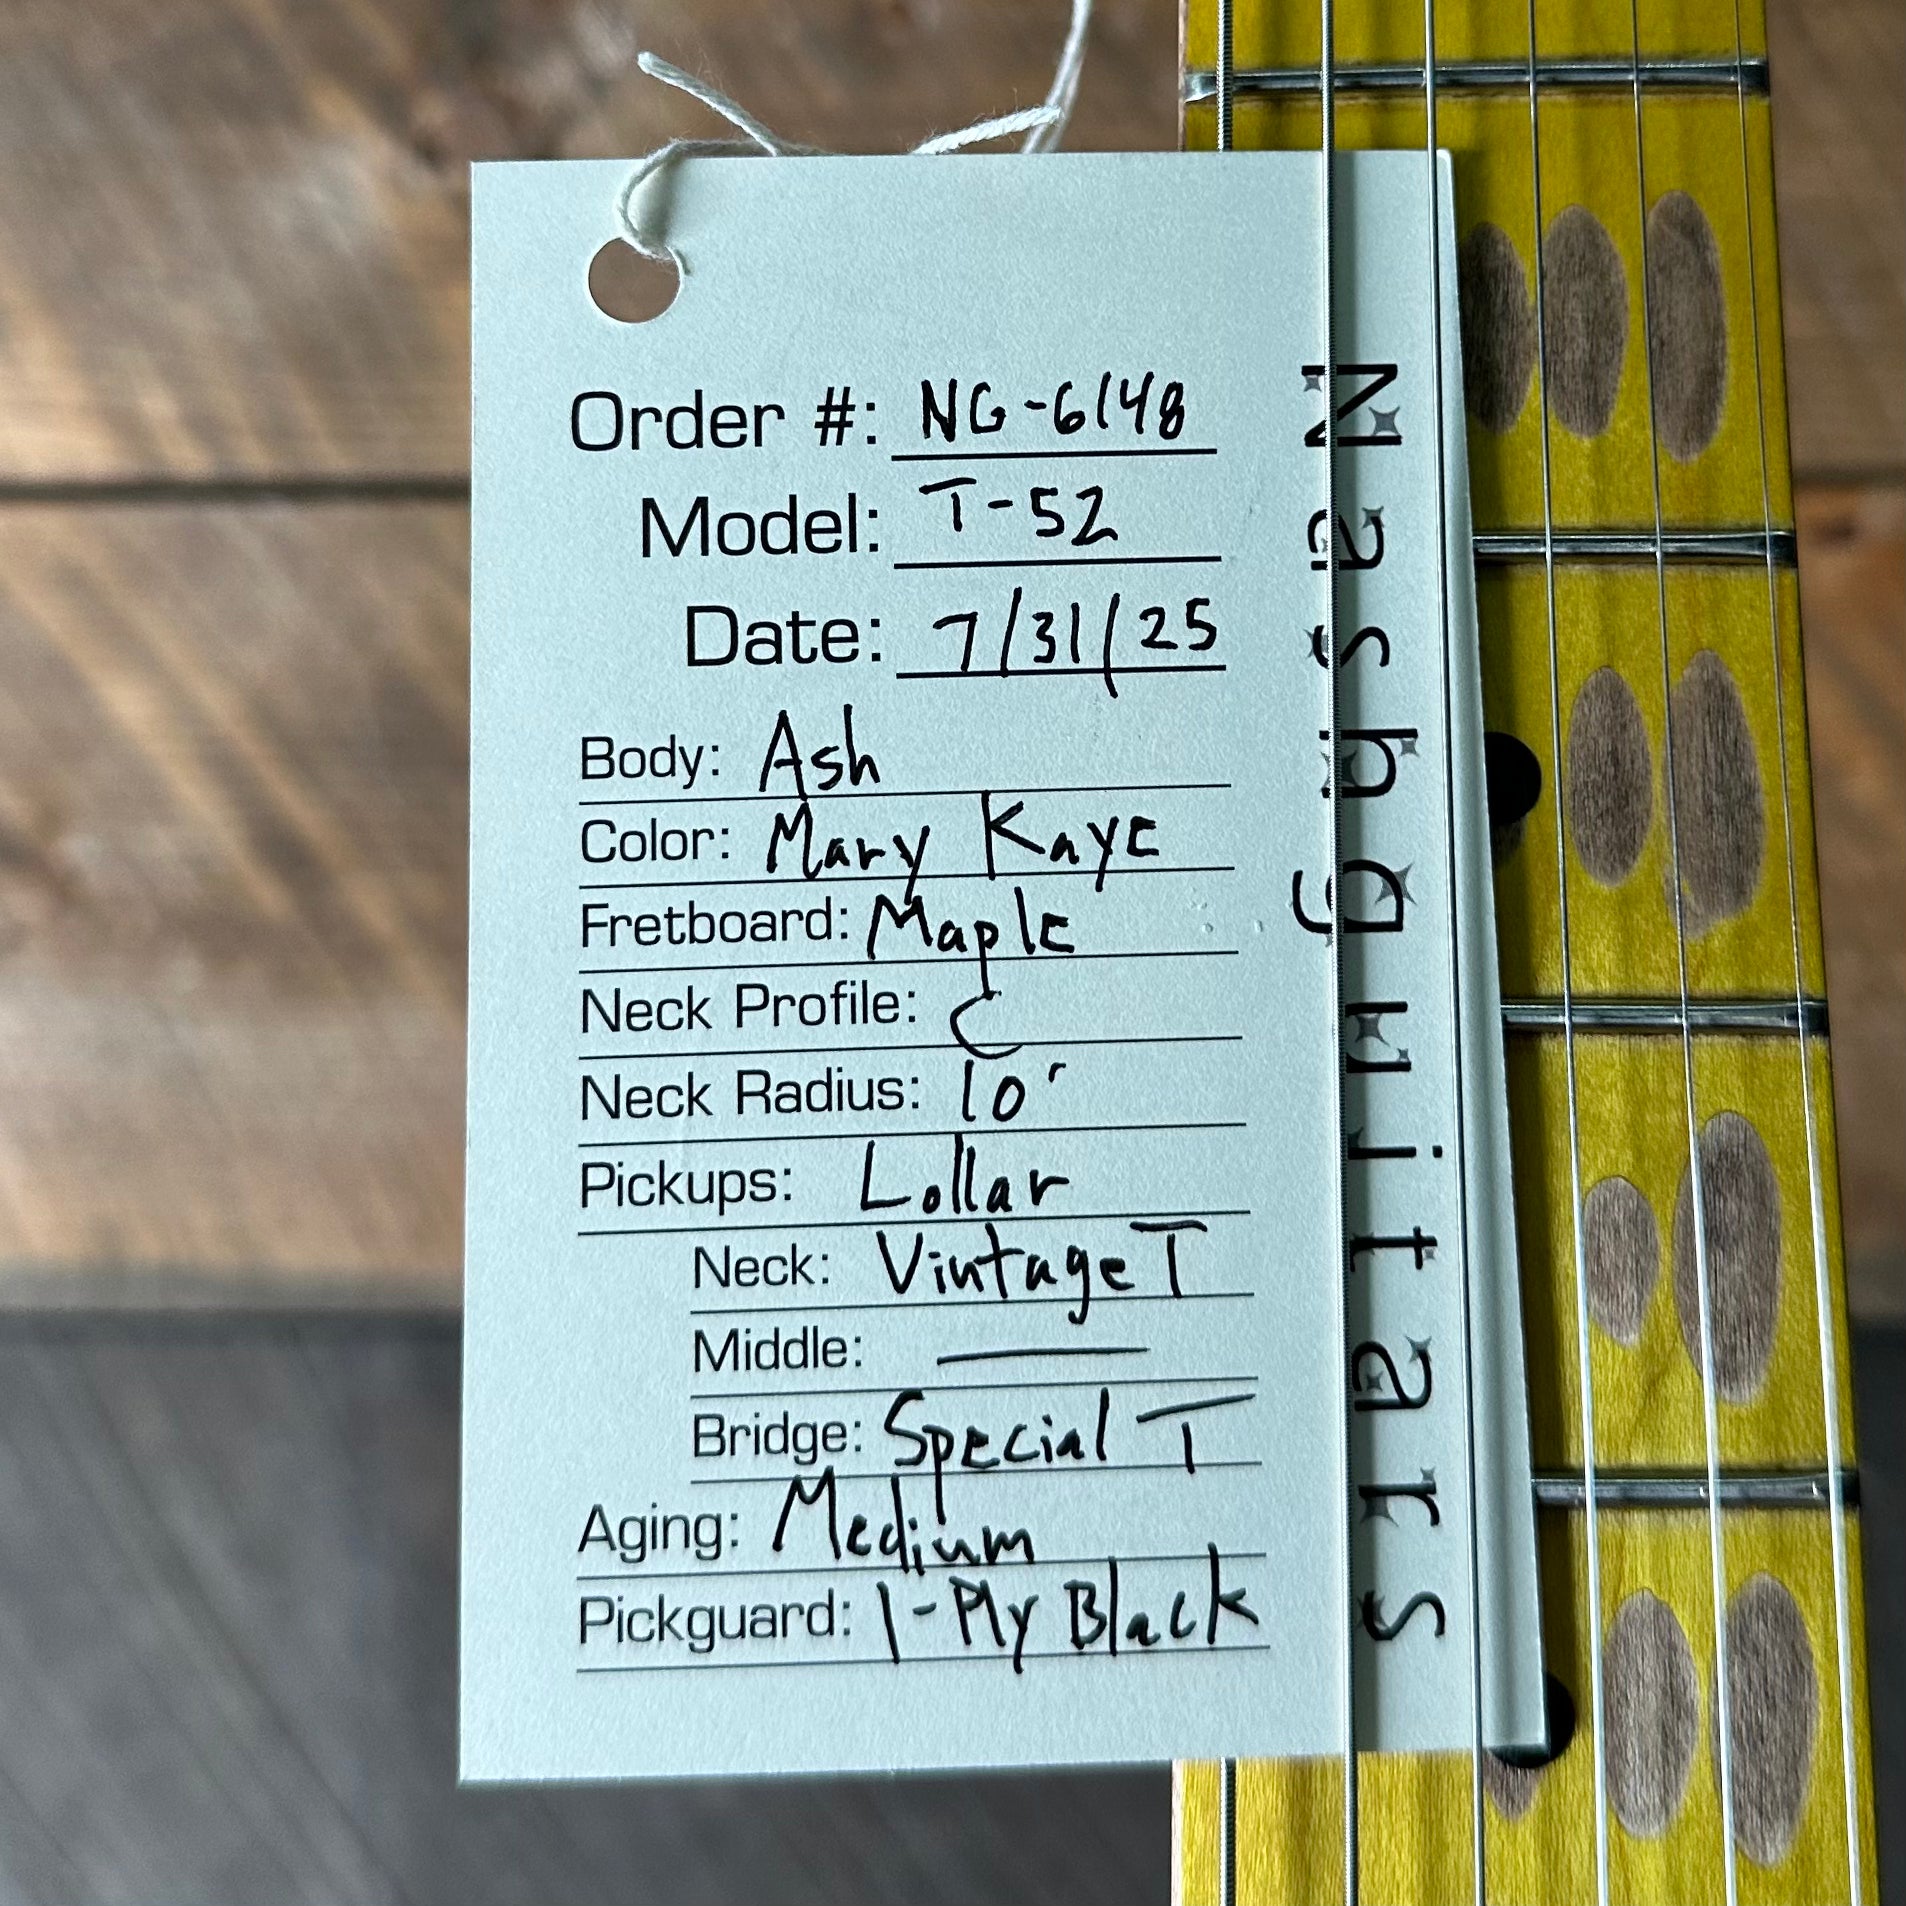 Order #: NG-6148
Model: T-52
Date: 7/31/25
Body: Ash
Color: Mary Kaye
Fretboard: Maple
Neck Profile: C
Neck Radius: 10"
Pickups: Lollar
Neck: Vintage T
Middle: —
Bridge: Special T
Aging: Medium
Pickguard: 1-Ply Black
Nashguitars